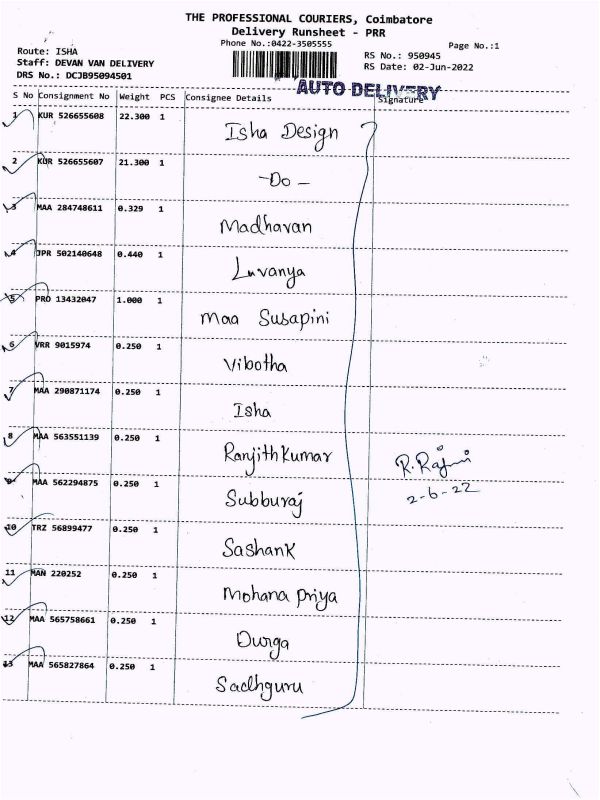 THE PROFESSIONAL COURIERS, Coimbatore
Delivery Runsheet - PRR
Phone No.:0422-3505555
Page No.:1
Route: ISHA
Staff: DEVAN VAN DELIVERY
DRS No.: DCJB95094501
RS No.: 950945
RS Date: 02-Jun-2022
AUTO DELIVERY
S No Consignment No Weight PCS Consignee Details Signature
1 KUR 526655608 22.300 1 Isha Design
2 KUR 526655607 21.300 1 -Do-
3 MAA 284748611 0.329 1 Madhavan
4 JPR 502140648 0.440 1 Luvanya
5 PRO 13432047 1.000 1 Maa Susapini
6 VRR 9015974 0.250 1 Vibotha
7 MAA 290871174 0.250 1 Isha
8 MAA 563551139 0.250 1 Ranjith Kumar
R. Rajni
9 MAA 562294875 0.250 1 Subburaj
2-6-22
10 TRZ 56899477 0.250 1 Sashank
11 MAN 220252 0.250 1 Mohana Priya
12 MAA 565758661 0.250 1 Durga
13 MAA 565827864 0.250 1 Sadhguru